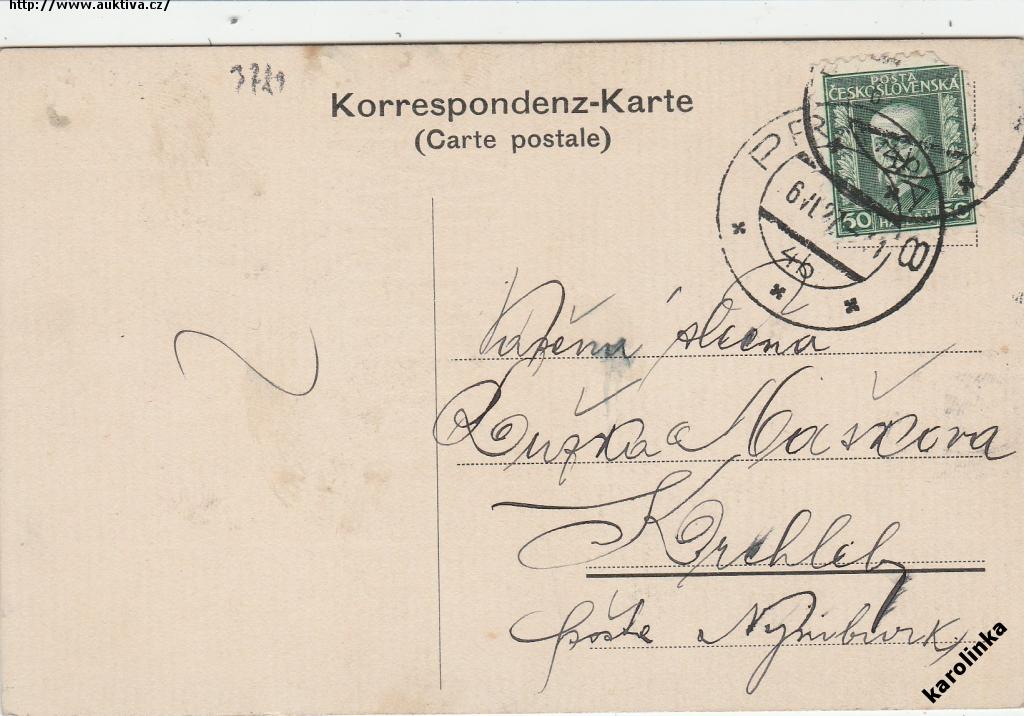 http://www.auktiva.cz/
Korrespondenz-Karte
(Carte postale)
POSTA
ČESKOSLOVENSKÁ
50 50
PRAHA 8
4b
Vážena slečna
Ružka Maškova
Krchleby
pošta Nymburk
karolinka